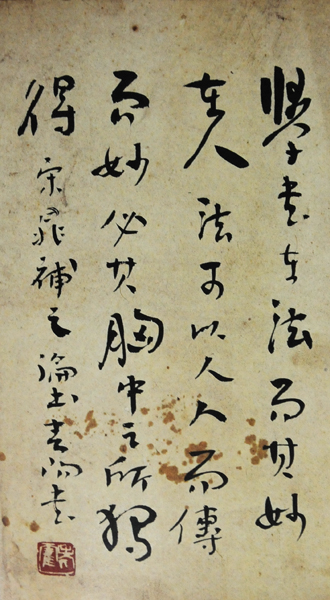 學書在法而其妙
在人法可以人人而傳
而妙必其胸中之所獨
得宋晁補之論書書